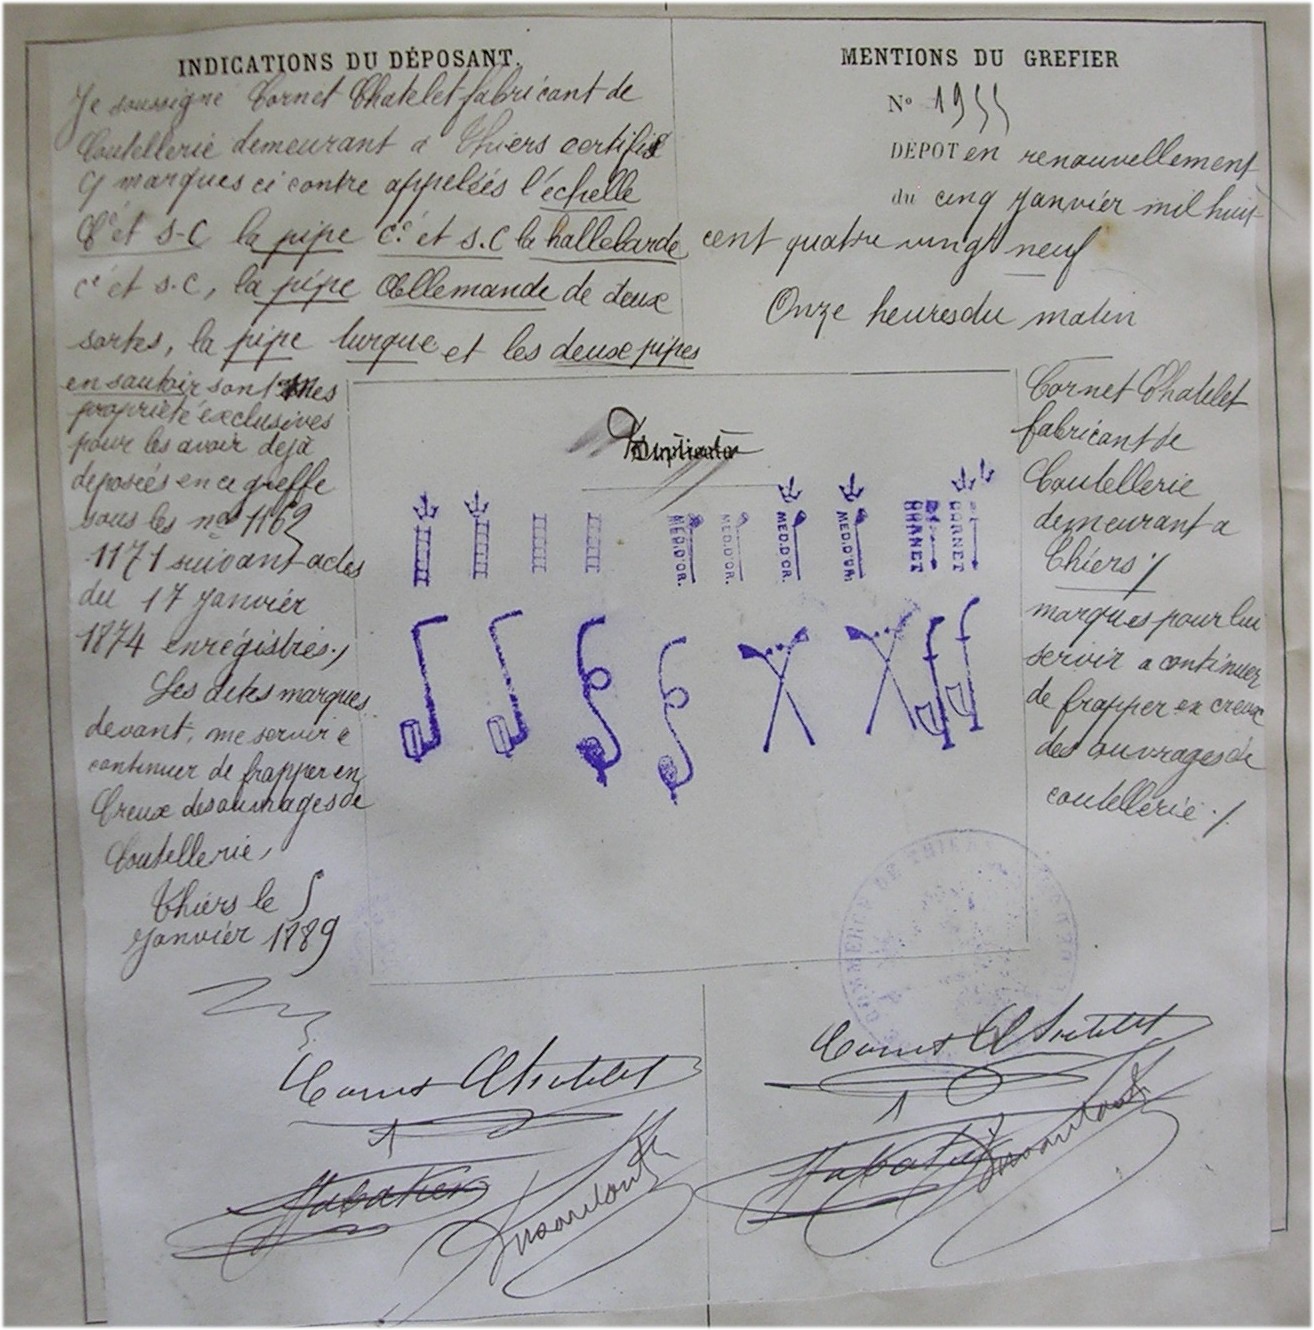 INDICATIONS DU DÉPOSANT.
Je soussigné Cornet Chatelet fabricant de
Coutellerie demeurant a Thiers certifie
q marques ci contre appelées l'échelle
Cé et S-C la pipe cé et S.C la hallebarde
cé et s.c, la pipe Allemande de deux
sortes, la pipe turque et les deux pipes
en sautoir sont mes
propriété exclusives
pour les avoir dejà
deposées en ce greffe
sous les nos 1169
1171 suivant actes
du 17 Janvier
1874 enrégistrés,
Les dites marques
devant, me servir à
continuer de frapper en
Creux des ouvrages de
Coutellerie,
Thiers le 5
Janvier 1889
MENTIONS DU GREFIER
No 1955
DÉPOT en renouvellement
du cinq Janvier mil huit
cent quatre vingt neuf
Onze heures du matin
Cornet Chatelet
fabricant de
Coutellerie
demeurant a
Thiers
marques pour lui
servir a continuer
de frapper en creux
des ouvrages de
coutellerie.
Duplicata
MED.D'OR.
MED.D'OR.
MED.D'OR.
MED.D'OR.
CORNET
COMMERCE DE THIERS
Cornet Chatelet
Cornet Chatelet